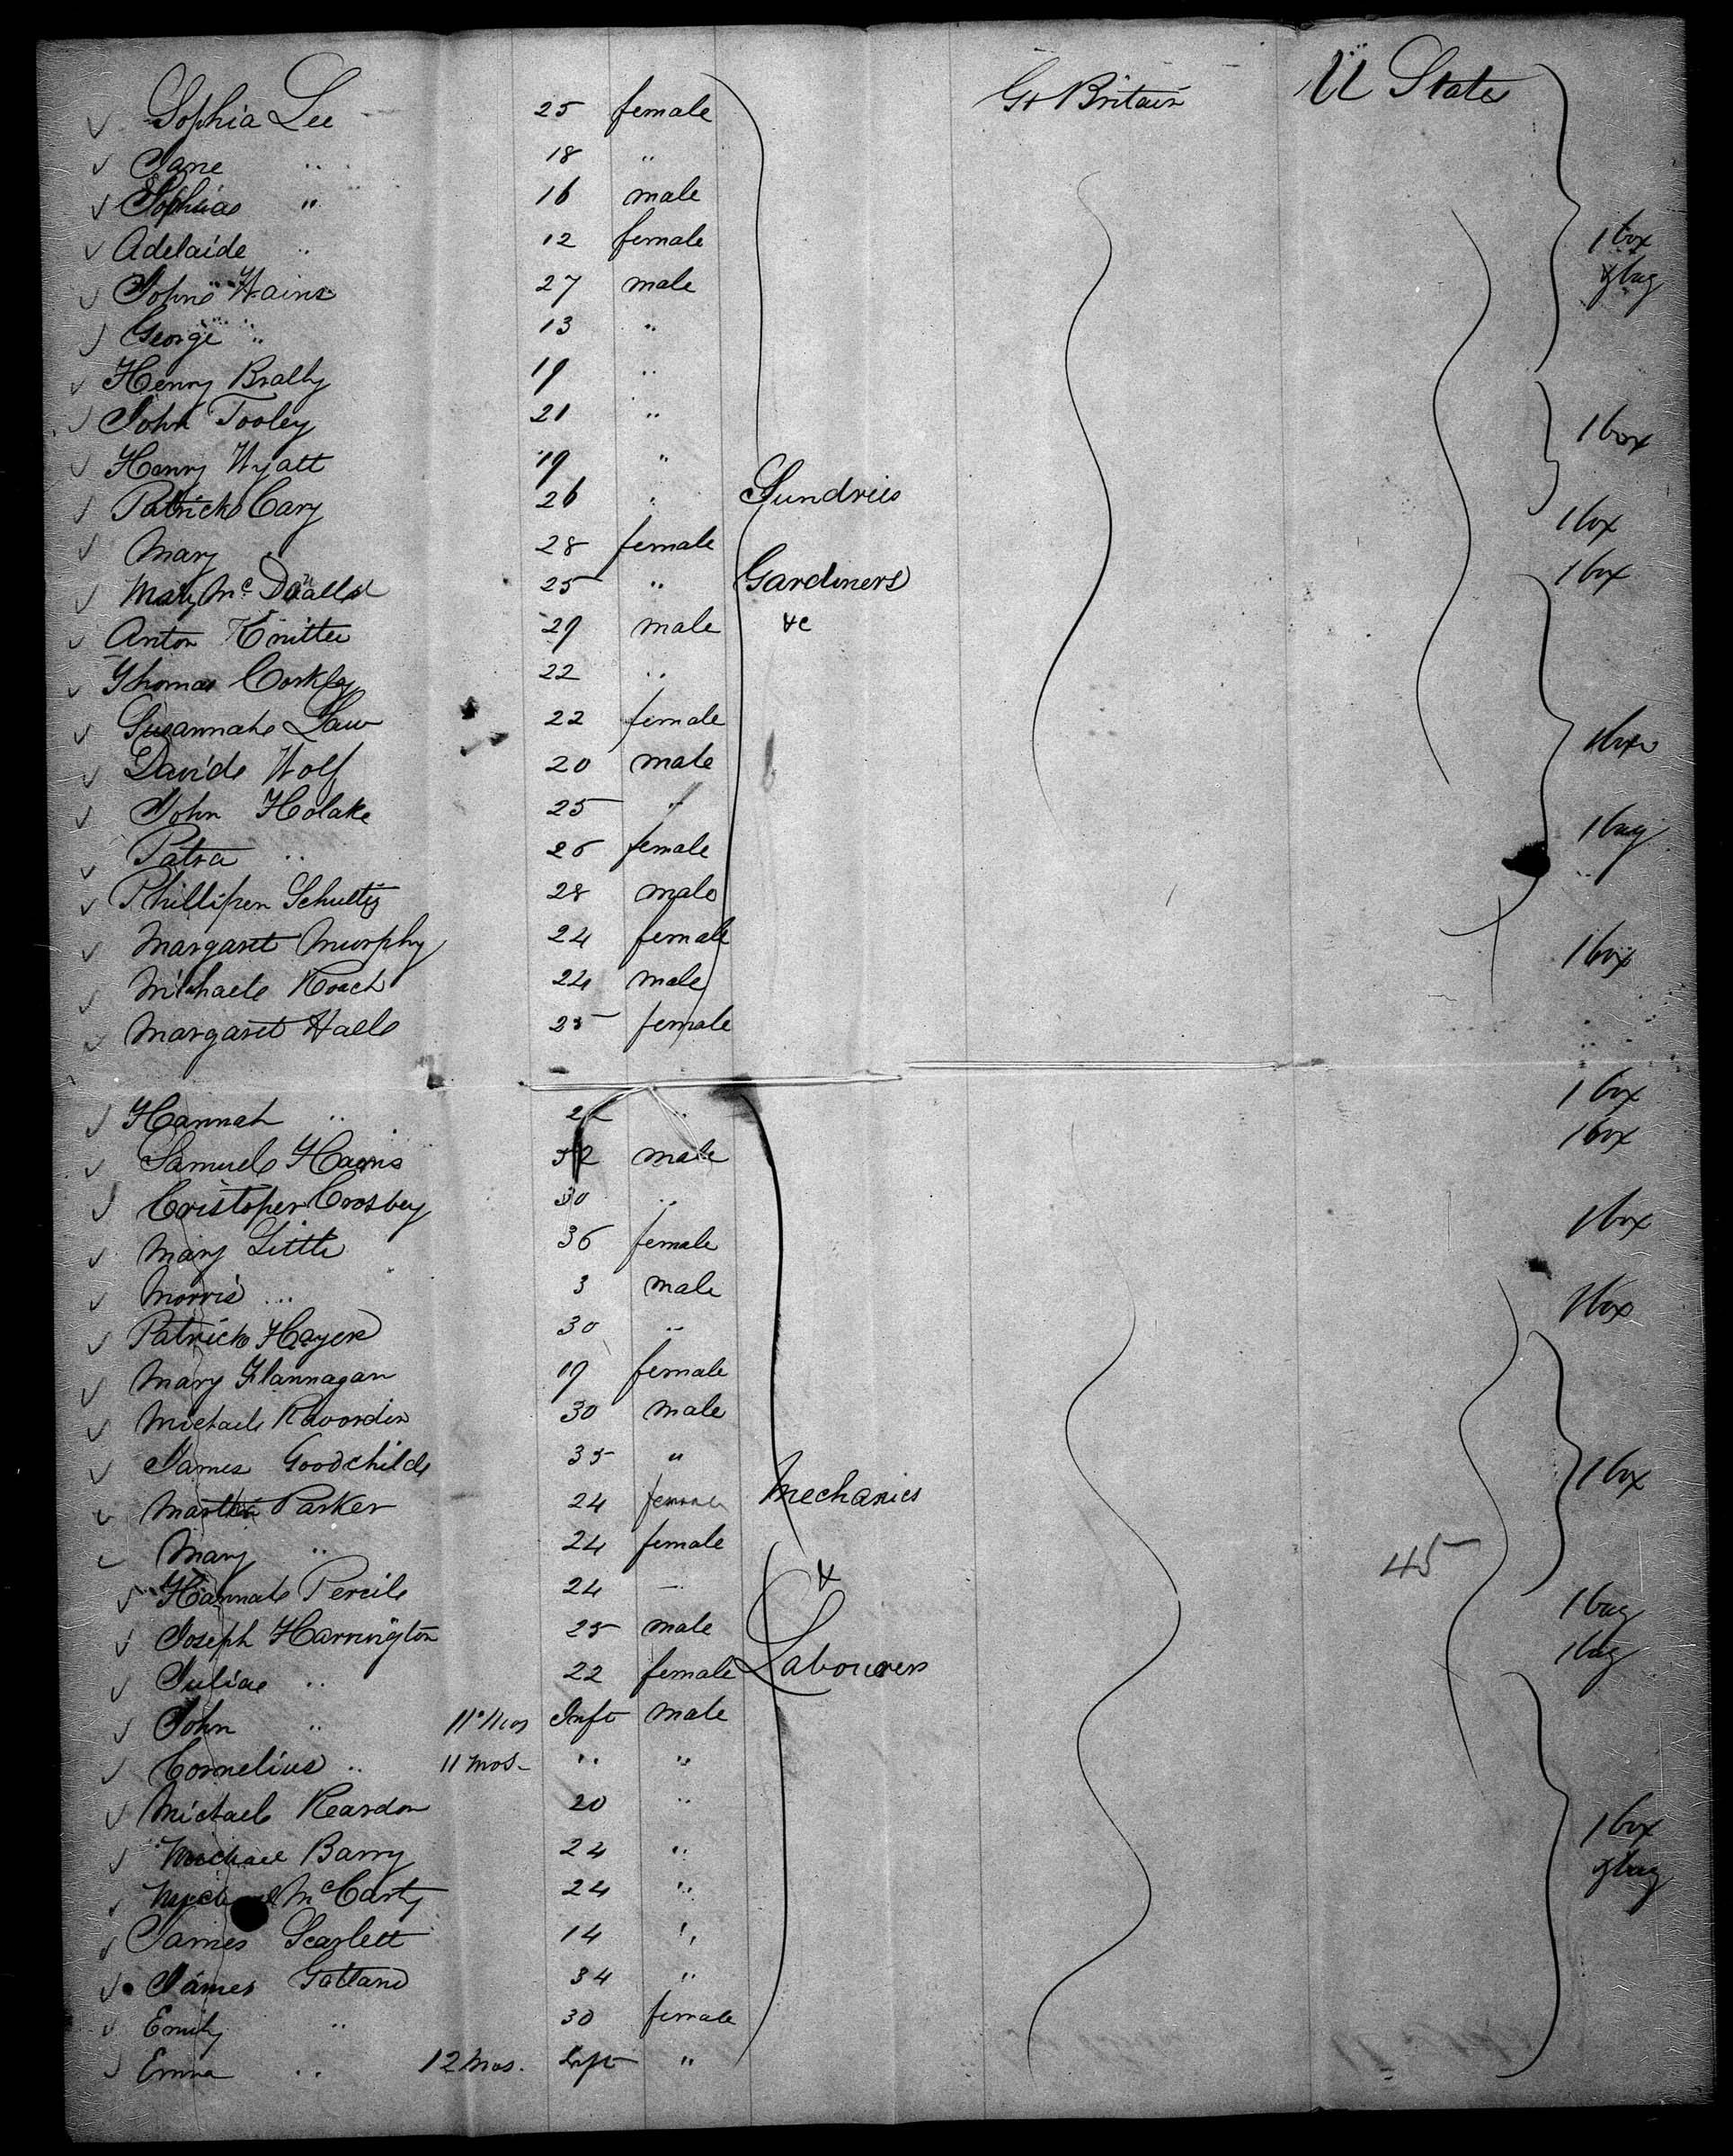 Sophia Lee 25 female Gt Britain U States
Jane " 18 "
Sophia " 16 male
Adelaide " 12 female 1 box
John Hains 27 male & bag
George " 13 "
Henry Bralby 19 "
John Tooley 21 " 1 box
Henry Wyatt 19 "
Patrick Cary 26 " Sundries 1 box
Mary 28 female
Mary Mc 25 " Gardiners 1 box
Anton Knitter 29 male &c
Thomas Corkley 22 "
Susannah Law 22 female
David Wolf 20 male 1 box
John Holake 25 "
Patra " 26 female 1 bag
Phillipen Schultz 28 male
Margaret Murphy 24 female 1 box
Michael Roach 24 male
Margaret Hall 25 female
Hannah " 2 " 1 box
Samuel Harris male 1 box
Cristoper Crosbey 30 "
Mary Little 36 female 1 box
Morris " 3 male
Patrick Hayes 30 " 1 box
Mary Flannagan 19 female
Michael 30 male
James Goodchild 35 "
Parker 24 Mechanics 1 box
Mary " 24 female
Hannah 24 — & 45
Joseph Harrington 25 male 1 bag
Julia " 22 female Labourers 1 bag
John " 11 Mos Inft male
Cornelius " 11 mos. " "
Michael Reardon 20 "
Michael Barry 24 " 1 box
Mc Carty 24 " & bag
James Scarlett 14 "
James Gatland 34 "
Emily " 30 female
Emma " 12 Mos. Inft "